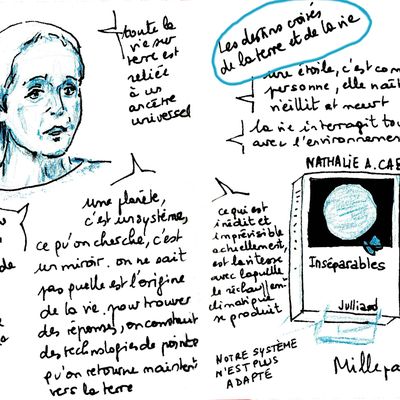 toute la
vie sur
terre est
reliée
à un
ancêtre
universel
Les destins croisés
de la terre et de la vie
une étoile, c'est com
personne, elle naît
vieillit et meurt
la vie interragit tou
avec l'environnemen
NATHALIE A. CAB
une planète,
c'est un système,
ce qu'on cherche, c'est
un miroir. on ne sait
pas quelle est l'origine
de la vie. pour trouver
des réponses, on construit
des technologies de pointe
qu'on retourne maintent
vers la terre
de
ce qui est
inédit et
imprévisible
actuellement,
est la vitesse
avec laquelle
le réchauffemt
climatique
se produit
Inséparables
Julliard
NOTRE SYSTÈME
N'EST PLUS
ADAPTÉ
Millepa